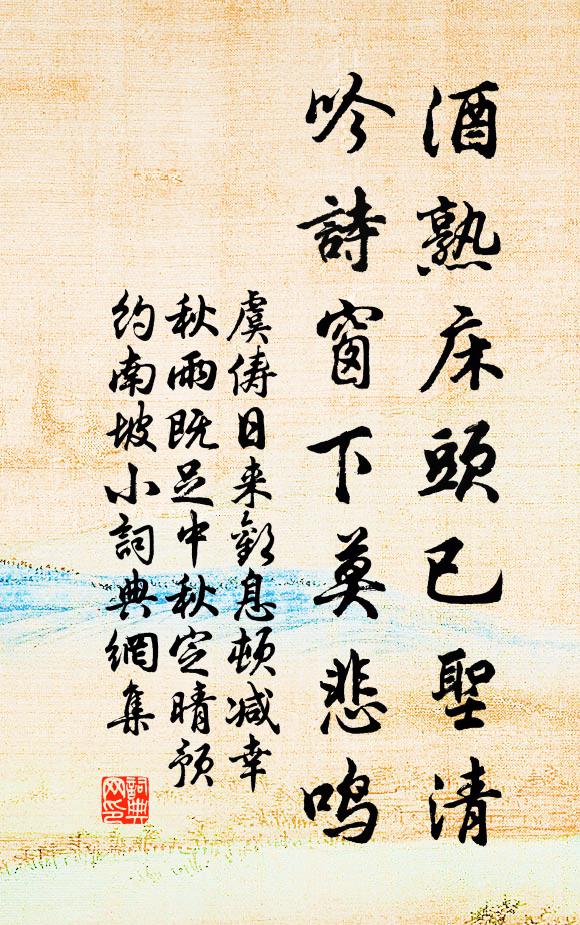 酒熟床頭已聖清
吟詩窗下莫悲鳴
虞儔日来歎息頓减幸
秋雨既足中秋定晴预
约南坡小詞典網集
詞典网印